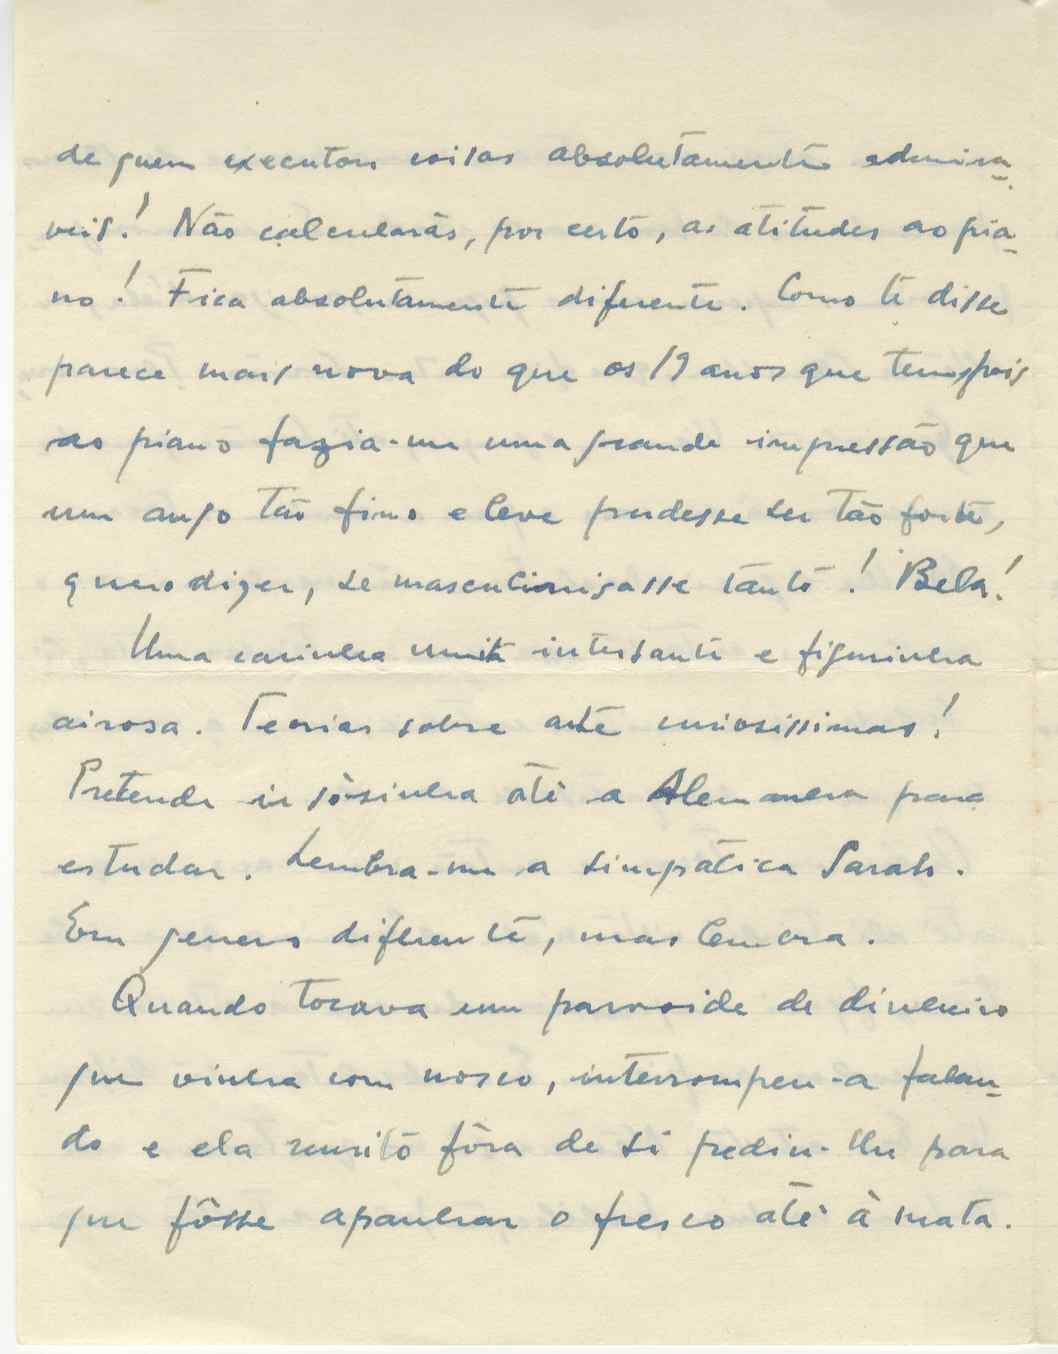 de quem executou coisas absolutamente admira-
veis! Não calcularás, por certo, as atitudes ao pia-
no! Fica absolutamente diferente. Como te disse
parece mais nova do que os 19 anos que tem, pois
ao piano fazia-me uma grande impressão que
um anjo tão fino e leve pudesse ser tão forte,
quero dizer, se masculinisasse tanto! Bela!
Uma carinha muito intersante e figurinha
airosa. Teorias sobre arte curiosissimas!
Pretende ir sòsinha até a Alemanha para
estudar. Lembra-me a simpática Sarah.
Em genero diferente, mas lembra.
Quando tocava um de dinheiro
que vinha com nosco, interrompeu-a falan-
do e ela muito fóra de si pediu-lhe para
que fôsse apanhar o fresco até à mata.